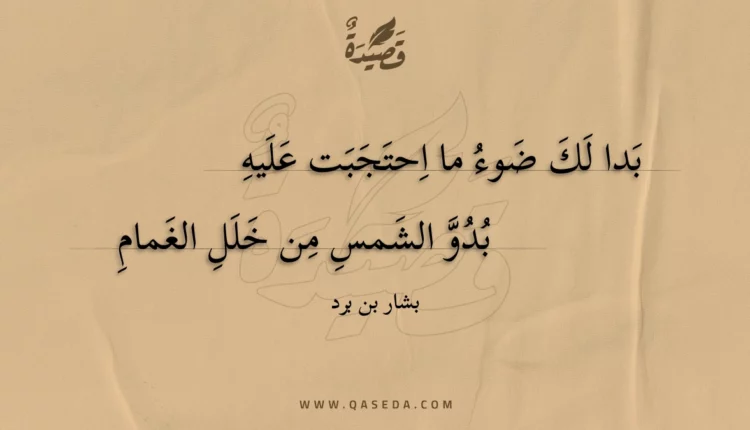 قَصِيدَةٌ
بَدا لَكَ ضَوءُ ما اِحتَجَبَت عَلَيهِ
بُدُوَّ الشَمسِ مِن خَلَلِ الغَمامِ
بشار بن برد
WWW.QASEDA.COM